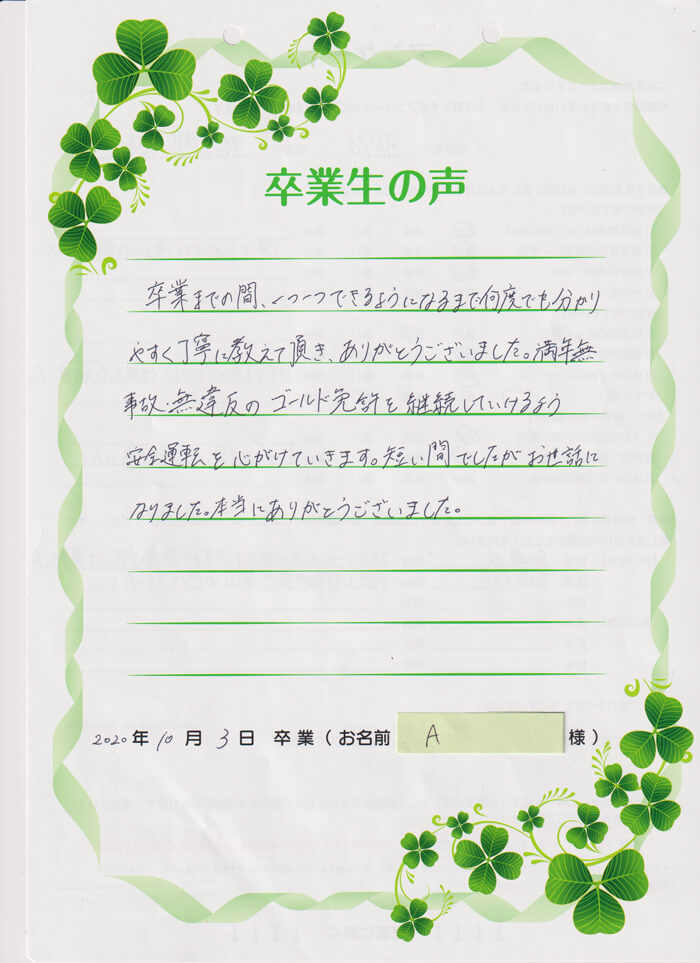 卒業生の声
卒業までの間、一つ一つできるようになるまで何度でも分かり
やすく丁寧に教えて頂き、ありがとうございました。満年無
事故・無違反のゴールド免許を継続していけるよう
安全運転を心がけていきます。短い間でしたがお世話に
なりました。本当にありがとうございました。
2020年10月3日 卒業(お名前 A 様)